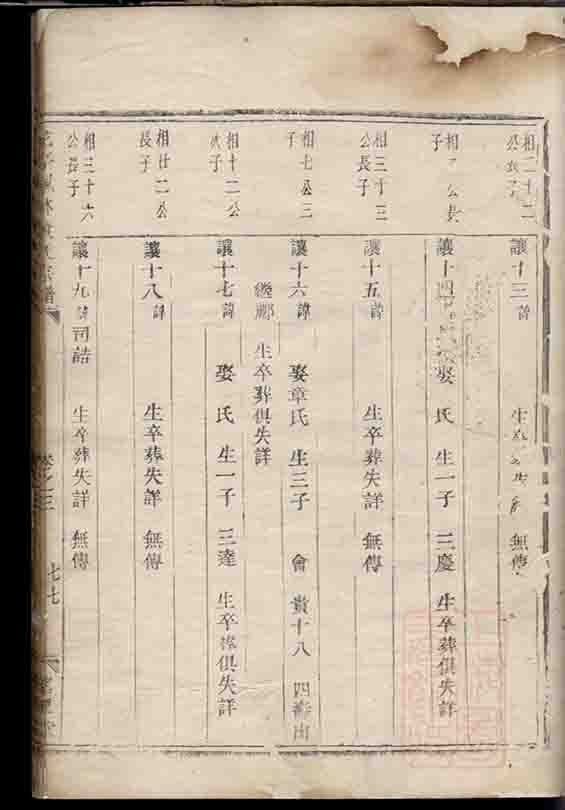 相二十二
公長子
讓十三諱 生 無傳
相 公長
子
讓十四 娶 氏 生一子 三慶 生卒葬俱失詳
相三十三
公長子
讓十五諱 生卒葬失詳 無傳
相七公三
子
讓十六諱 娶章氏 生三子 會 貴十八 四壽南
繼鄉 生卒葬俱失詳
相十二公
次子
讓十七諱 娶 氏 生一子 三達 生卒葬俱失詳
相廿二公
長子
讓十八諱 生卒葬失詳 無傳
相三十六
公長子
讓十九諱司誥 生卒葬失詳 無傳
宗譜 卷三 七七